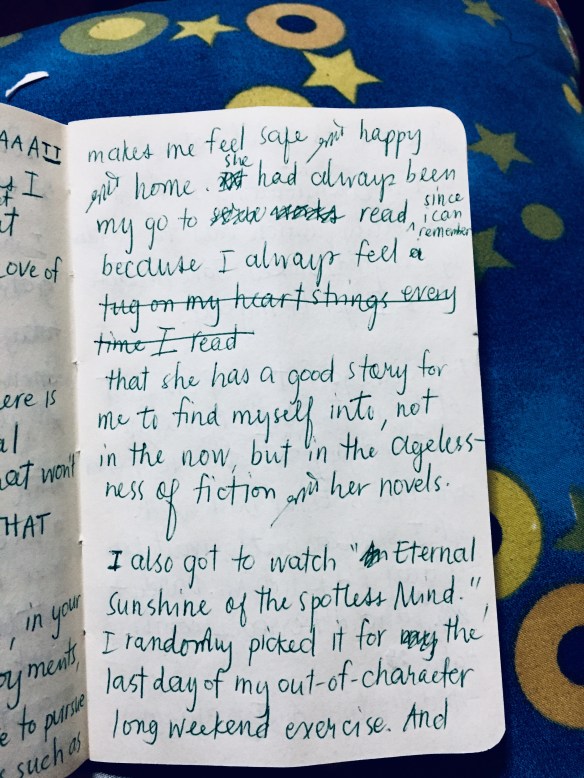 AAAII
I
Love of
ere is
al
at won't
THAT
, in your
oyments,
e to pursue
such as
makes me feel safe and happy
and home. she had always been
my go to read since i can remember
because I always feel a
tug on my heart strings every
time I read
that she has a good story for
me to find myself into, not
in the now, but in the ageless-
ness of fiction and her novels.
I also got to watch "Eternal
Sunshine of the Spotless Mind."
I randomly picked it for the
last day of my out-of-character
long weekend exercise. And